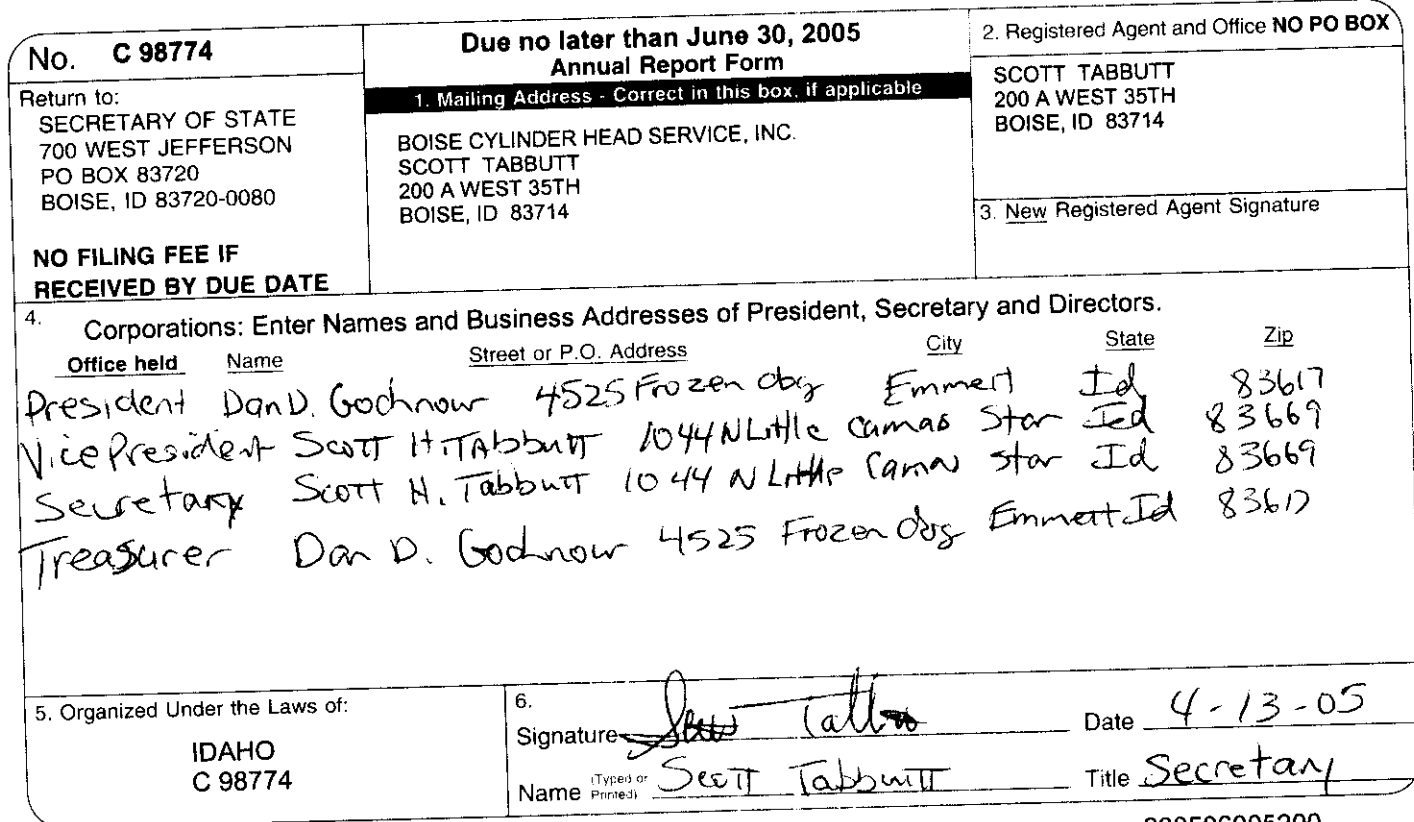 No. C 98774
Return to:
SECRETARY OF STATE
700 WEST JEFFERSON
PO BOX 83720
BOISE, ID 83720-0080
NO FILING FEE IF
RECEIVED BY DUE DATE
Due no later than June 30, 2005
Annual Report Form
1. Mailing Address - Correct in this box, if applicable
BOISE CYLINDER HEAD SERVICE, INC.
SCOTT TABBUTT
200 A WEST 35TH
BOISE, ID 83714
2. Registered Agent and Office NO PO BOX
SCOTT TABBUTT
200 A WEST 35TH
BOISE, ID 83714
3. New Registered Agent Signature
4. Corporations: Enter Names and Business Addresses of President, Secretary and Directors.
Office held Name Street or P.O. Address City State Zip
President Dan D. Gochnour 4525 Frozen Dog Emmert Id 83617
Vice President Scott H. TAbbutt 1044 N Little Camas Star Id 83669
Secretary Scott H. Tabbutt 1044 N Little Camas Star Id 83669
Treasurer Dan D. Gochnour 4525 Frozen Dog Emmett Id 83617
5. Organized Under the Laws of:
IDAHO
C 98774
6.
Signature Scott Tabbutt Date 4-13-05
Name (Typed or Printed) Scott Tabbutt Title Secretary